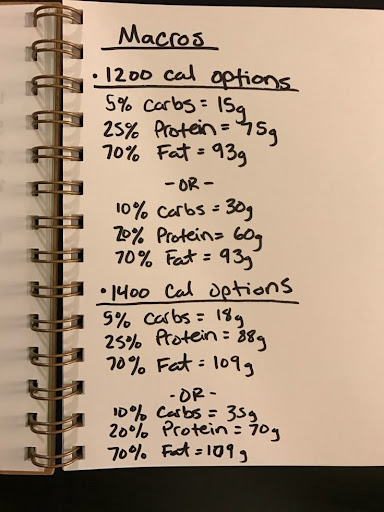 Macros
• 1200 cal options
5% Carbs = 15g
25% Protein = 75g
70% Fat = 93g
- OR -
10% Carbs = 30g
20% Protein = 60g
70% Fat = 93g
• 1400 Cal options
5% Carbs = 18g
25% Protein = 88g
70% Fat = 109g
- OR -
10% Carbs = 35g
20% Protein = 70g
70% Fat = 109g